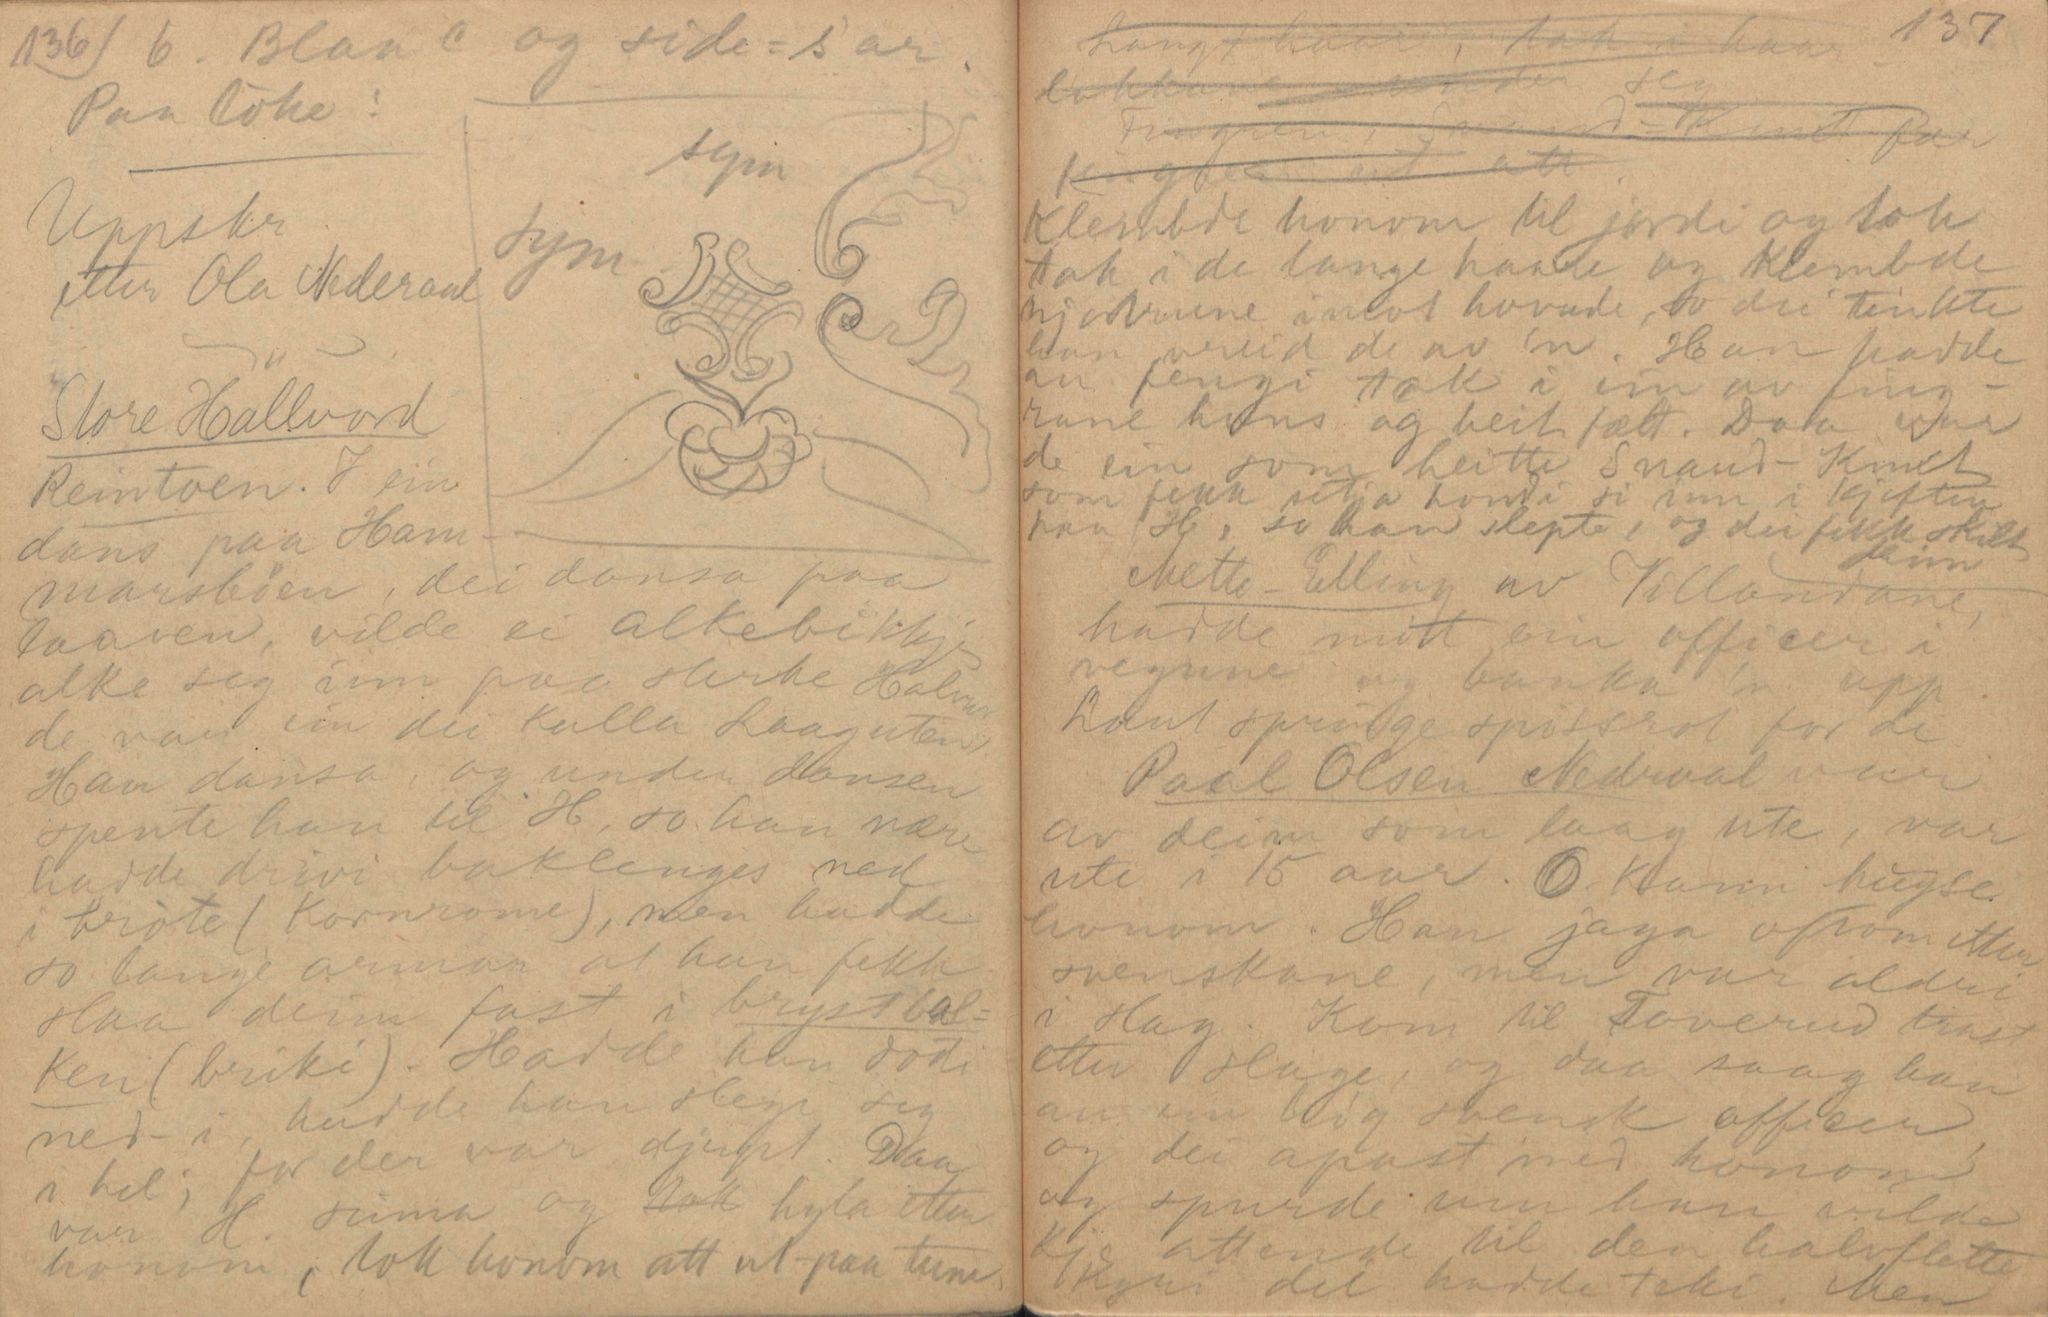 136) 6. Blaa C og side = s'ar.
Paa loke:
sym
sym
Uppskr
etter Ola Nederaal
Store Hallvord
Reintoen. I ein
dans paa Ham-
marsbøen, dei dansa paa
laaven, vilde ei alkebikkje
alke seg inn paa sterke Halvor
de var ein dei kalla Laaguten,
Han dansa, og under dansen
spente han til H, so han nære
hadde drivi baklenges ned
i trøte (Kornrome), men hadde
so lange armar at han fekk
slaa deim fast i brystbal=
ken (briki). Hadde han dotti
ned-i, hadde han slegi seg
i hel; for der var djupt. Daa
var H. sinna og tok hyla etter
honom, tok honom att ut-paa tune.
137
Langt haar, tok i haar-
lokkane seg
Fingren, Snaud-Knut fan
fingren ut att.
Klembde honom til jordi og tok
tak i de lange haare og klembde
njodrune imot hovude, so dei tenkte
han vreid de av 'n. Han hadde
au fengi tak i ein av fing-
rane hans og beit fælt. Daa var
de ein som heitte Snaud-Knut
som fekk setja hondi si inn i kjeften
paa H, so han slepte, og dei fekk skilt
deim
Mette-Elling av Villandane,
hadde møtt ein officer i
vegunne og banka 'n upp.
Laut springe spissrot for de
Paal Olsen Nedraal var
av deim som laag ute, var
ute i 15 aar. O. kann hugse
honom. Han jaga ofrom etter
svenskane, men var aldri
i slag. Kom til Toverud trast
etter slage, og daa saag han
au ein lig svensk officer,
og dei apast med honom
og spurde um han vilde
kje attende til den halvflette
kyri dei hadde teki. Men